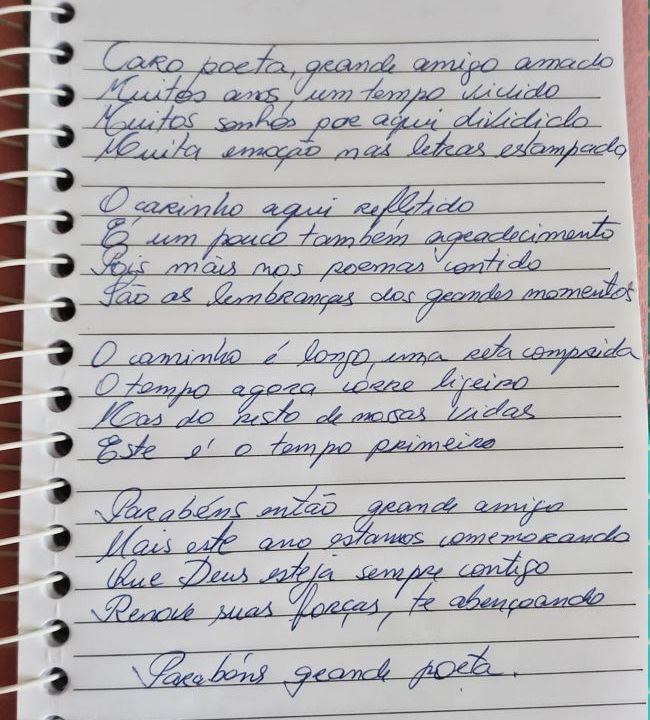 Caro poeta, grande amigo amado
Muitos anos, um tempo vivido
Muitos sonhos por aqui dividido
Muita emoção nas letras estampada
O carinho aqui refletido
É um pouco também agradecimento
Pois mais nos poemas contido
São as lembranças dos grandes momentos
O caminho é longo, uma reta comprida
O tempo agora corre ligeiro
Mas do resto de nossas vidas
Este é o tempo primeiro
Parabéns então grande amigo
Mais este ano estamos comemorando
Que Deus esteja sempre contigo
Renove suas forças, te abençoando
Parabéns grande poeta.